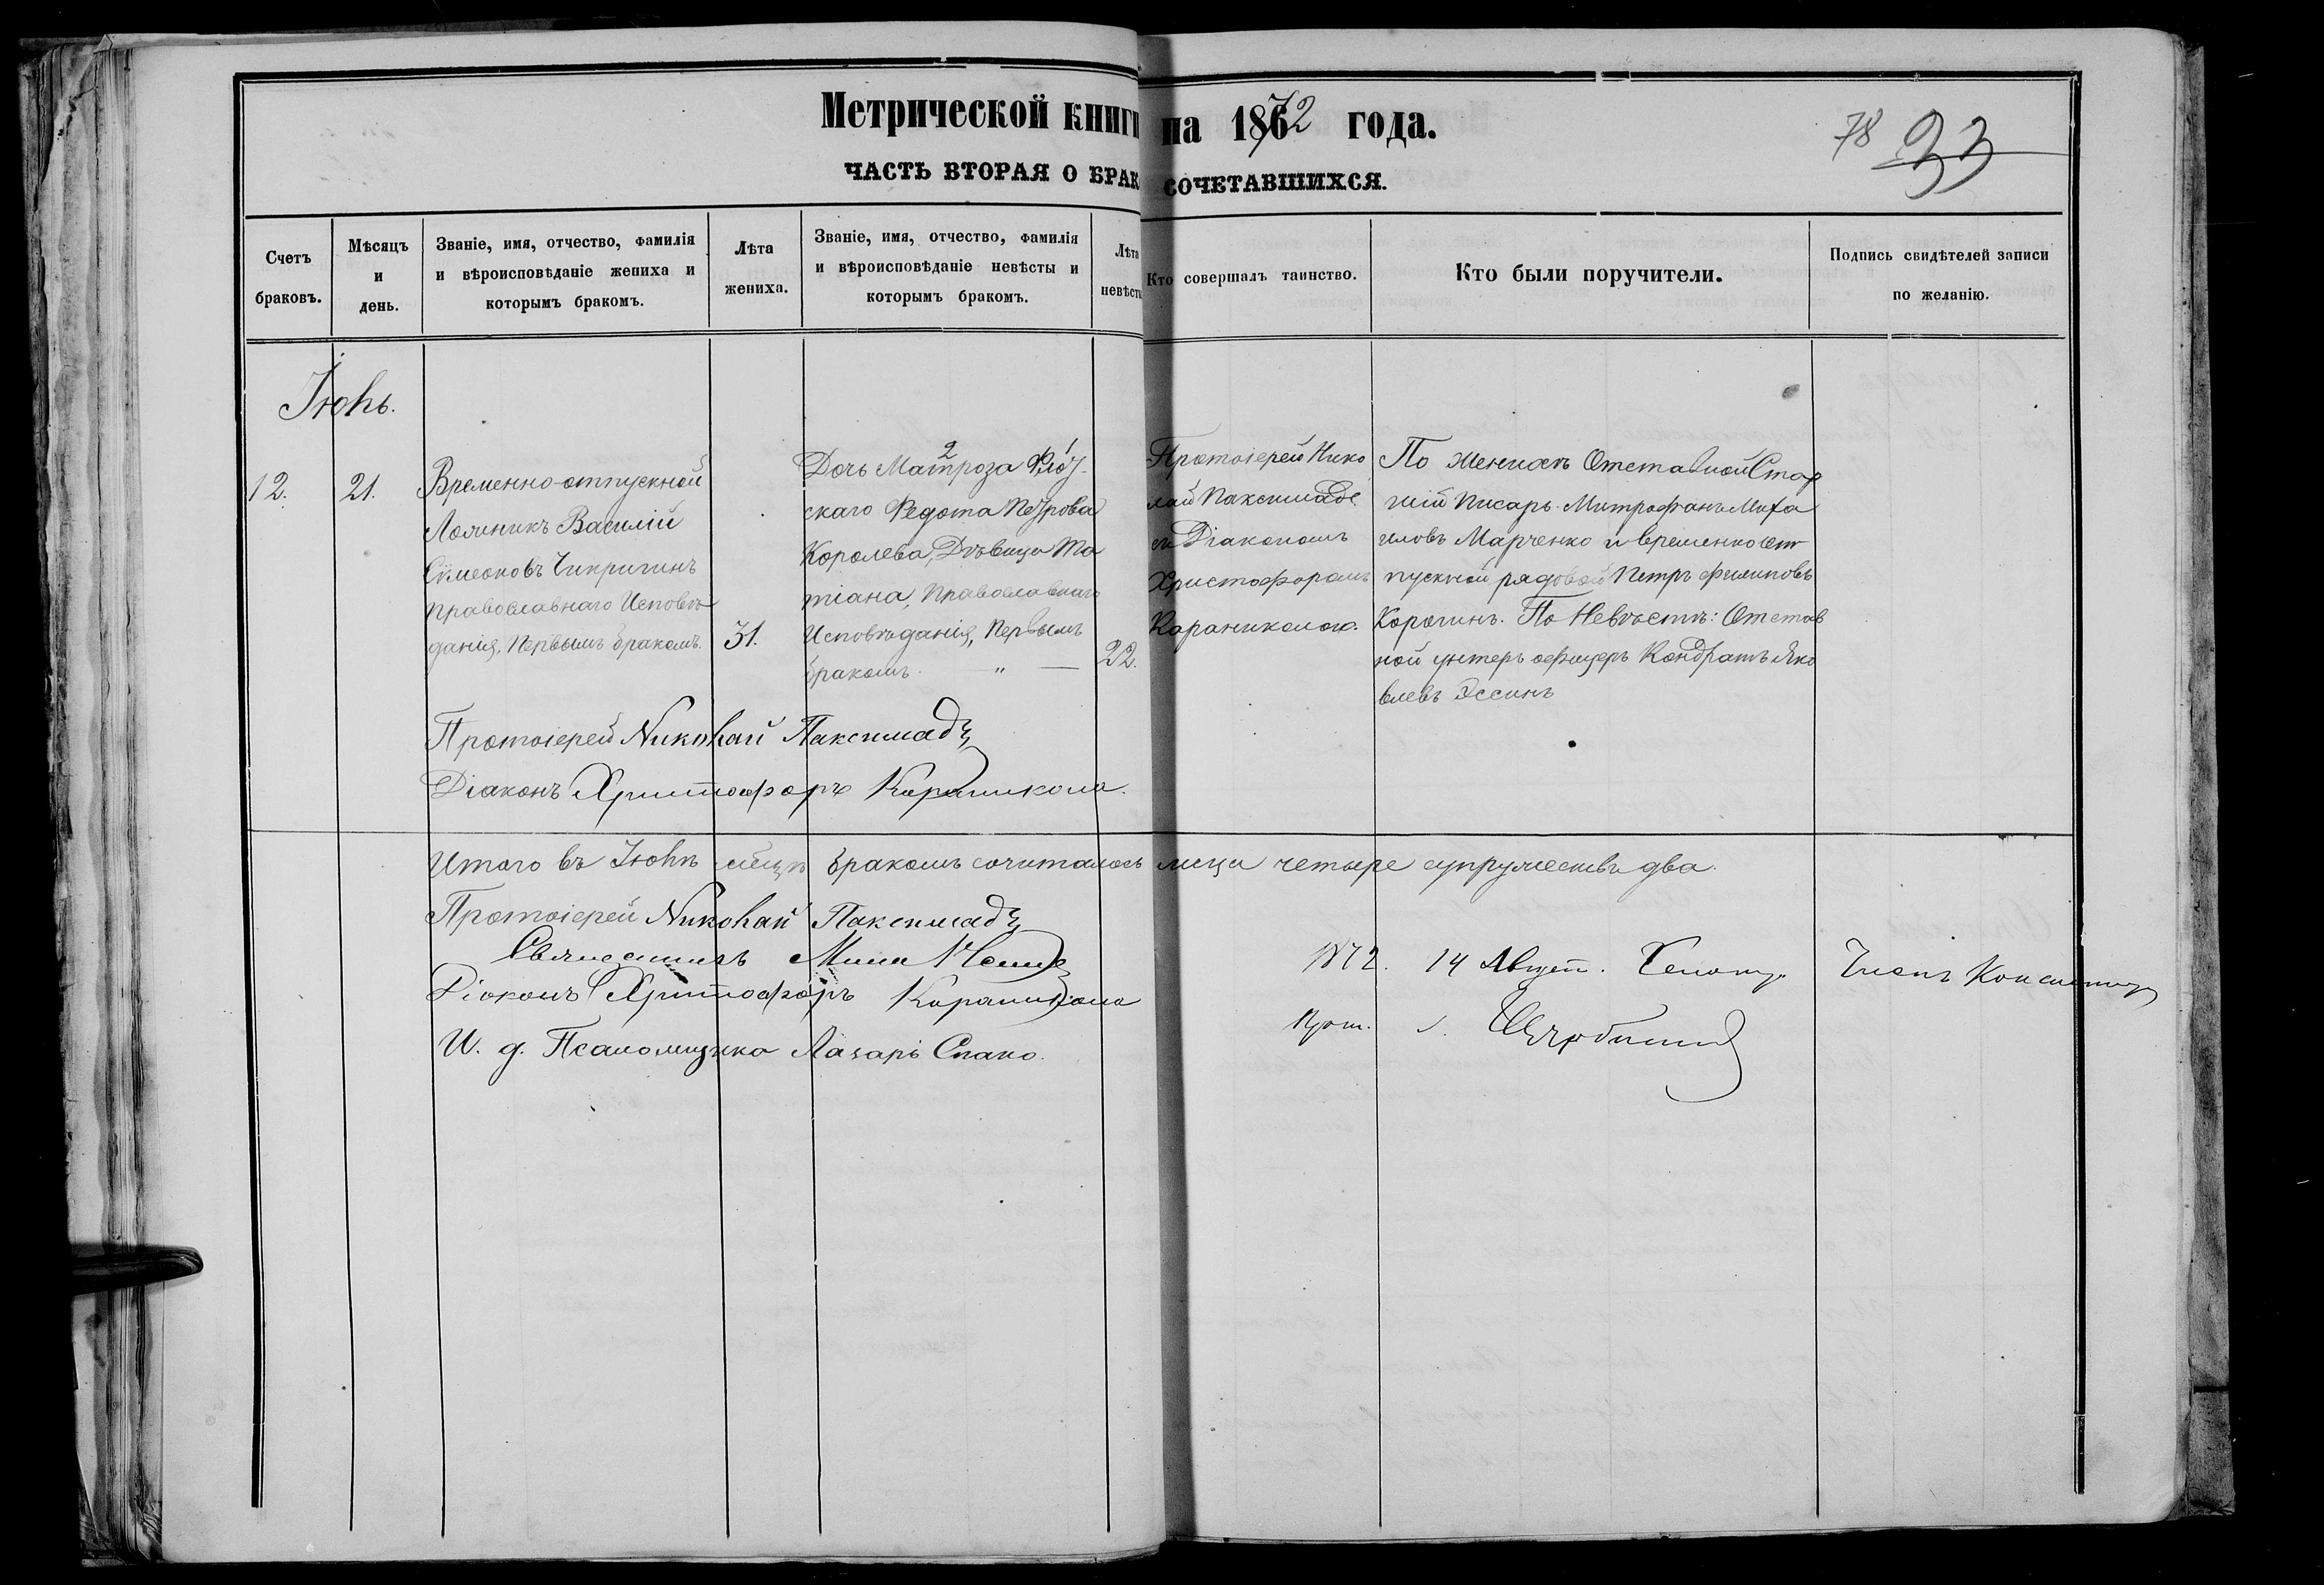 Метрической книги на 1872 года.
78 33
ЧАСТЬ ВТОРАЯ О БРАКОСОЧЕТАВШИХСЯ.
Счетъ браковъ.
Мѣсяцъ и день.
Званіе, имя, отчество, фамилія и вѣроисповѣданіе жениха и которымъ бракомъ.
Лѣта жениха.
Званіе, имя, отчество, фамилія и вѣроисповѣданіе невѣсты и которымъ бракомъ.
Лѣта невѣсты
Кто совершалъ таинство.
Кто были поручители.
Подпись свидѣтелей записи по желанію.
Іюнь.
12.
21.
Временно-отпускной
Василій
Сѵмеоновъ Чикригинъ
православнаго Исповѣ
данія, Первымъ бракомъ.
31.
Дочь Матроза Флот
скаго Федота Петрова
Королева, Дѣвица Та
тіана, Православнаго
Исповѣданія, Первымъ
бракомъ. " —
22.
Протоіерей Нико
лай Паксимаде
съ Діакономъ
Христофоромъ
Караникола.
По Женихѣ Отставной Стар
шій Писарь Митрофанъ Миха
иловъ Марченко и временноот
пускной рядовой Петръ Филиповъ
Корогинъ. По Невѣстѣ: Отстав
ной унтеръ офицеръ Кондратъ Яко
влевъ Эссинъ
Протоіерей Николай Паксимад
Діаконъ Христофоръ Караникола.
Итого въ Іюнѣ мѣцѣ бракомъ сочиталось лица четыре супружествъ два.
Протоіерей Николай Паксимад
Священникъ Мина
Діаконъ Христофоръ Караникола
И. д. Псаломщика Лазарь Спако.
1872. 14 Август. Членъ Консистор
Прот.